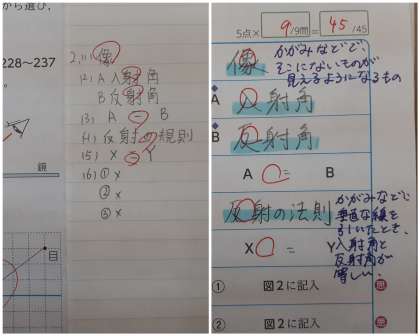 から選び,
228～237
鏡
目
2.(1) 像
(2) A 入射角
B 反射角
(3) A = B
(4) 反射の規則
(5) X = Y
(6) ① x
② x
③ x
5点× 9/9問 = 45 /45
像
かがみなどで、
そこにないものが
見えるようになるもの
A 入射角
B 反射角
A = B
反射の法則
かがみなどに
垂直な線を
引いたとき、
入射角と
反射角が
等しい。
X = Y
① 図2に記入
② 図2に記入